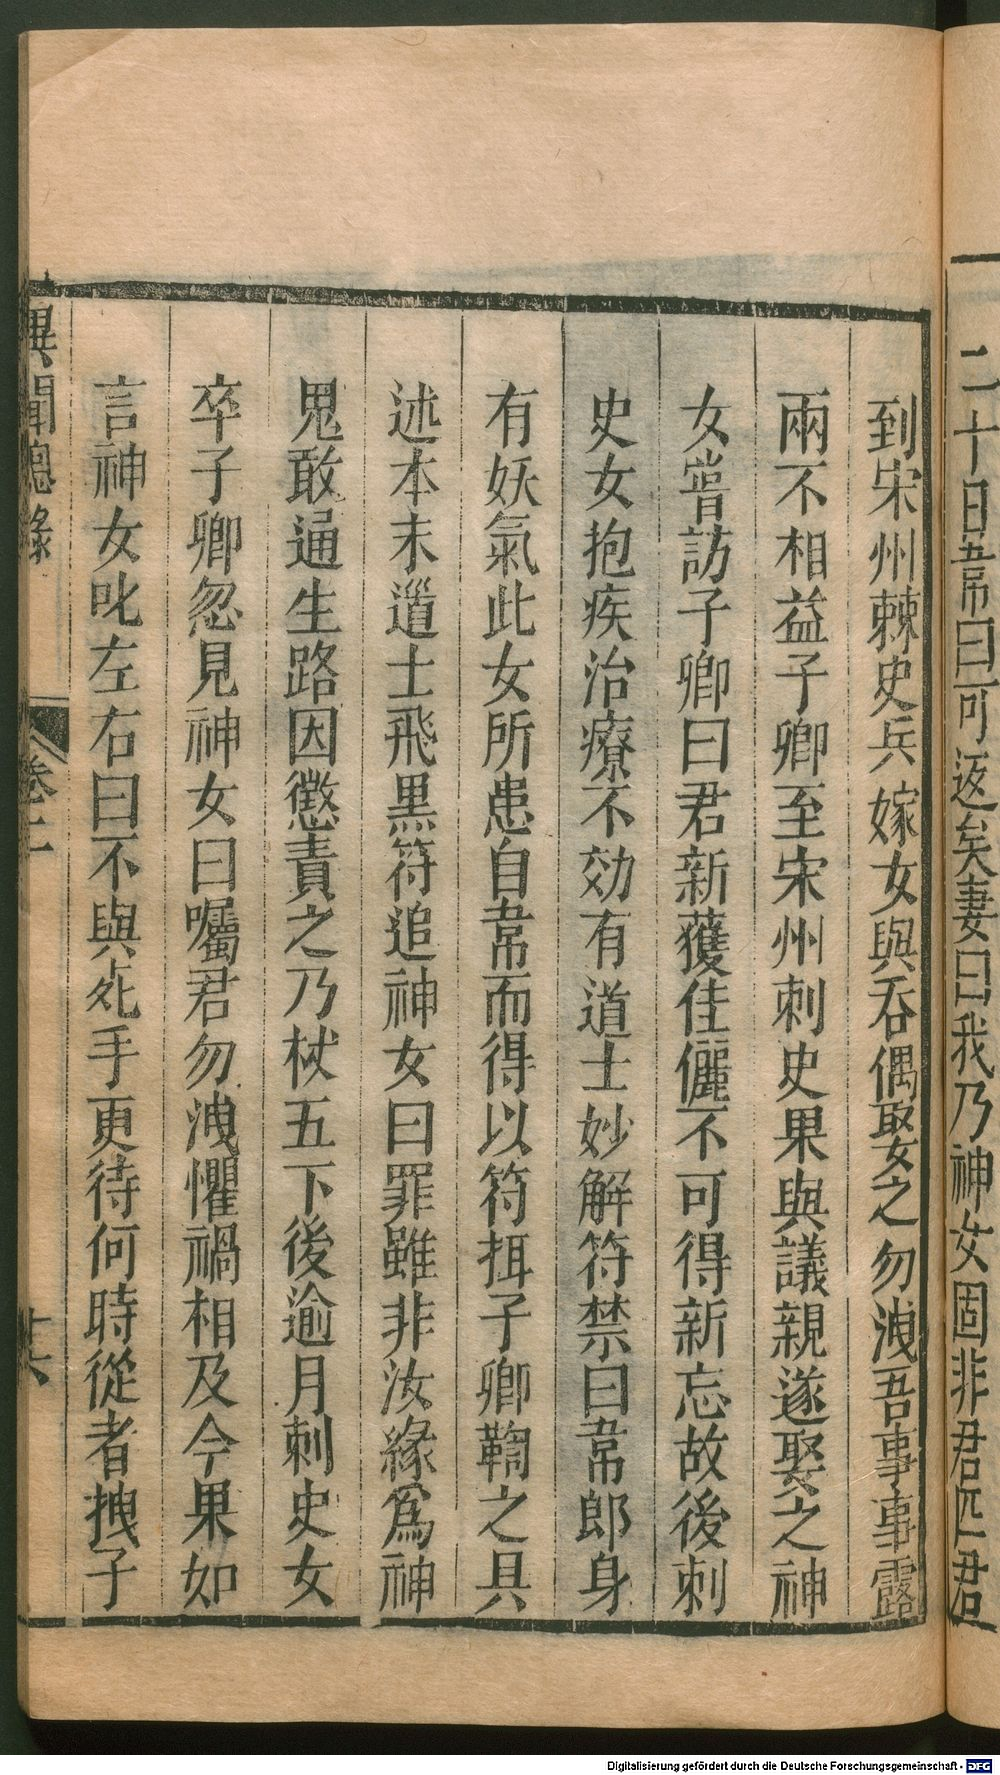 二十日韋曰可返矣妻曰我乃神女固非君匹君
到宋州棘史兵嫁女與吞偶娶之勿洩吾事事露
兩不相益子卿至宋州刺史果與議親遂娶之神
女嘗訪子卿曰君新獲佳儷不可得新忘故後刺
史女抱疾治療不効有道士妙解符禁曰韋郎身
有妖氣此女所患自韋而得以符挕子卿鞫之具
述本末道士飛黒符追神女曰罪雖非汝緣爲神
鬼敢通生路因懲責之乃杖五下後逾月刺史女
卒子卿忽見神女曰囑君勿洩懼禍相及今果如
言神女叱左右曰不與死手更待何時從者拽子
異聞總錄
卷二
十六
Digitalisierung gefördert durch die Deutsche Forschungsgemeinschaft - DFG